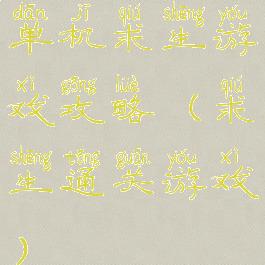 dān jī qiú shēng yóu
单机求生游
xì gōng lüè qiú
戏攻略（求
shēng tōng guān yóu xì
生通关游戏
）